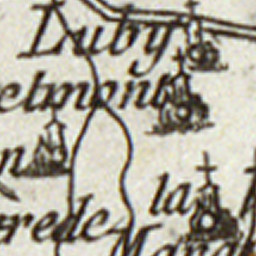 Luby
elmont
n
rede
la
Mara